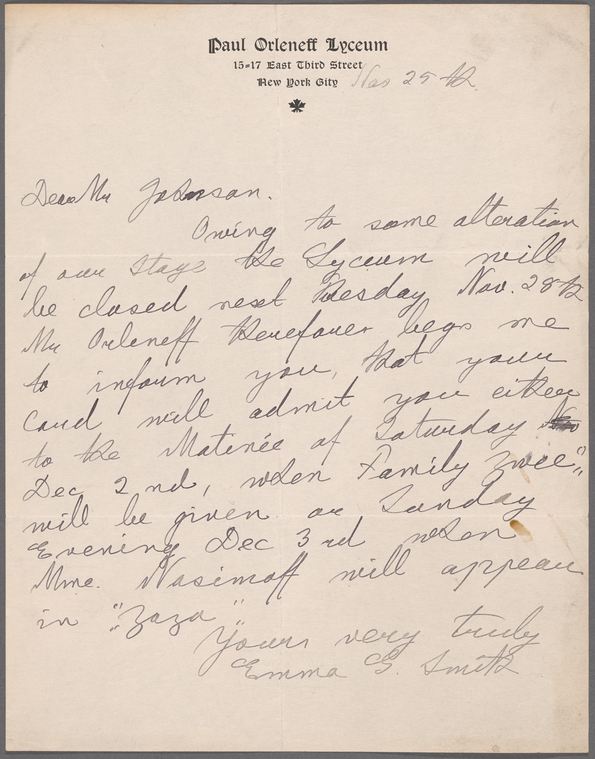 Paul Orleneff Lyceum
15-17 East Third Street
New York City
Nov 25th.
Dear Mr Johnson.
Owing to some alteration
of our Stage the Lyceum will
be closed next Tuesday Nov. 28th
Mr Orleneff therefower begs me
to inform you, that your
card will admit you either
to the Matinée of Saturday
Dec 2nd, when Family
will be given or Sunday
Evening Dec 3rd when
Mme. Nasimoff will appear
in "Zaza"
Yours very truly
Emma G. Smith